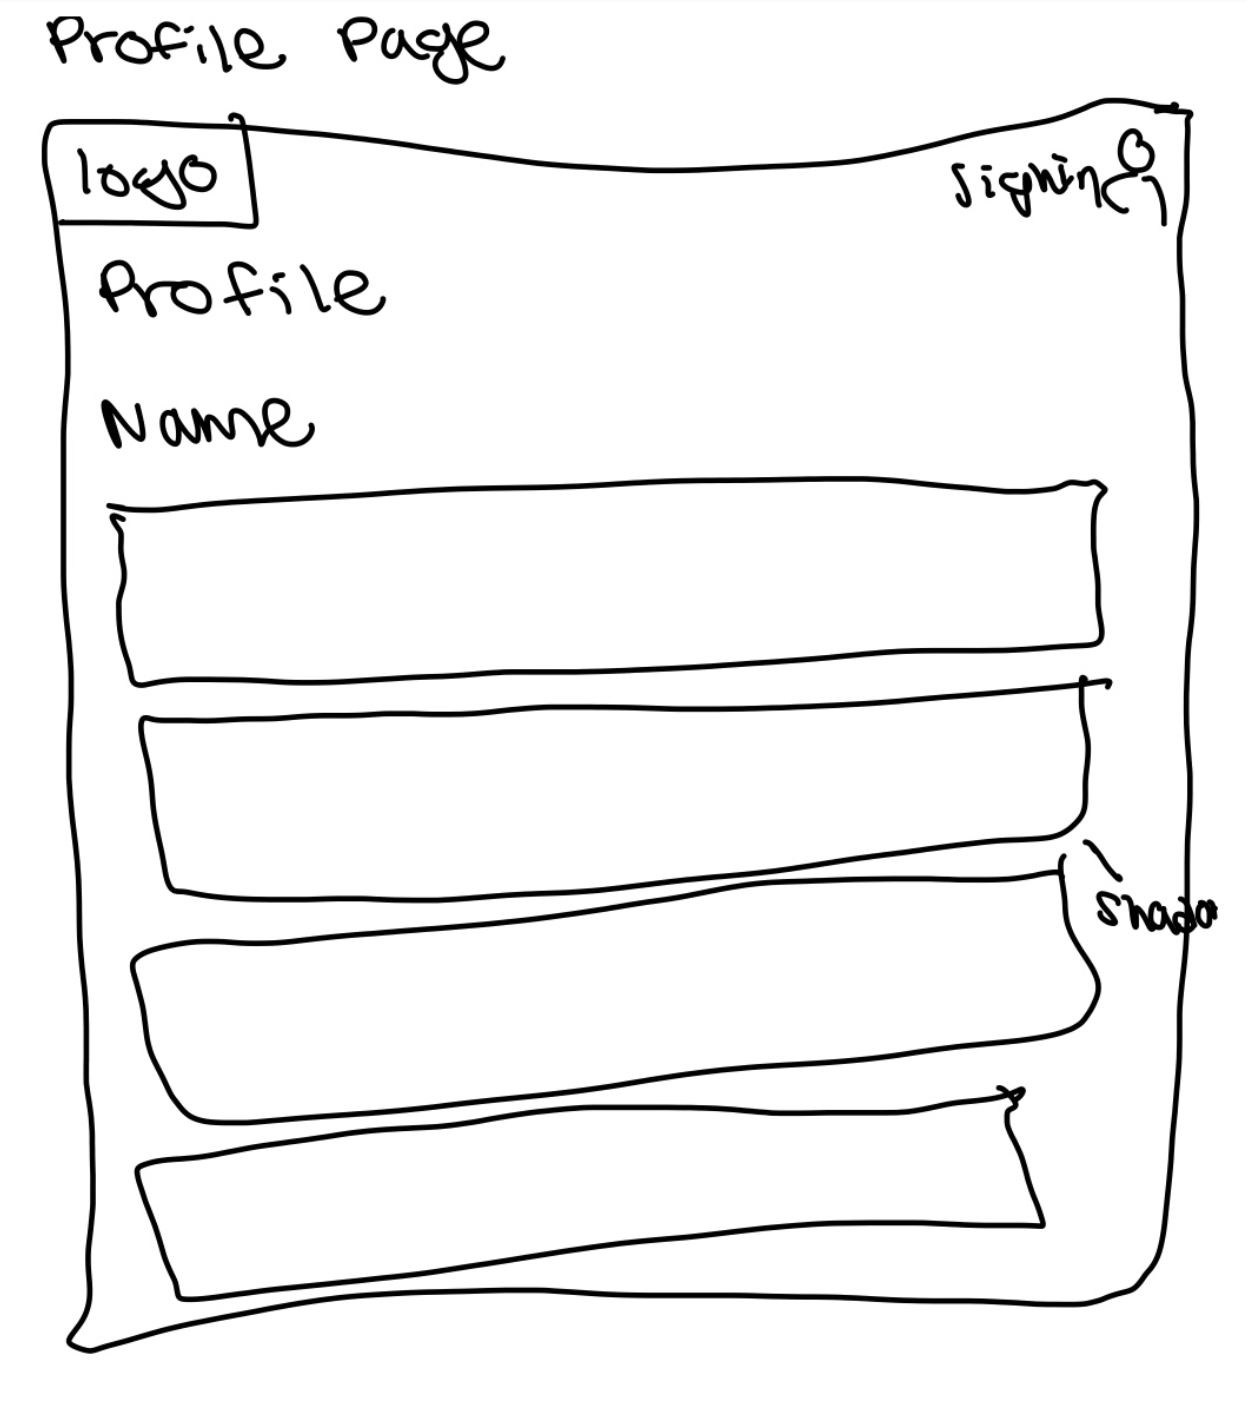 Profile Page
logo
Signin
Profile
Name
shado